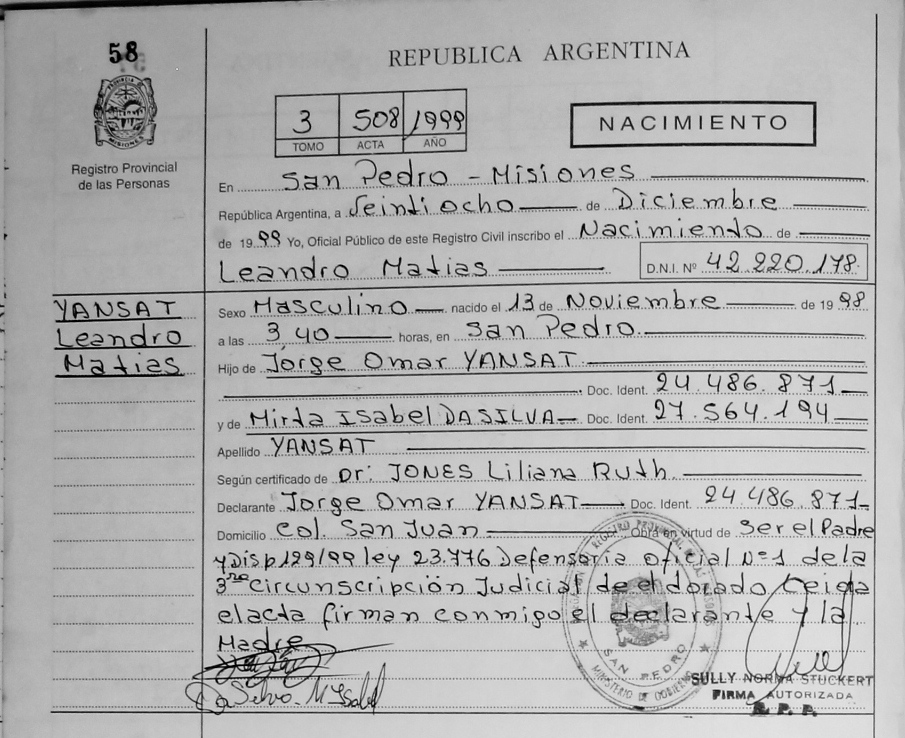 58
REPUBLICA ARGENTINA
PROVINCIA
MISIONES
3 508 1999
TOMO ACTA AÑO
NACIMIENTO
Registro Provincial
de las Personas
En San Pedro - Misiones
República Argentina, a Veintiocho de Diciembre
de 1999 Yo, Oficial Público de este Registro Civil inscribo el Nacimiento de
Leandro Matias D.N.I. Nº 42.220.178.
YANSAT
Leandro
Matias
Sexo Masculino nacido el 13 de Noviembre de 1998
a las 3,40 horas, en San Pedro.
Hijo de Jorge Omar YANSAT
Doc. Ident. 24.486.871
y de Mirta ISabel DASILVA Doc. Ident. 27.564.194
Apellido YANSAT
Según certificado de Dr: JONES Liliana Ruth.
Declarante Jorge Omar YANSAT Doc. Ident. 24.486.871
Domicilio Col. San Juan Obra en virtud de Ser el Padre
y Disp 129/99 ley 23.776 Defensoria oficial Nº1 de la
3ra Circunscripción Judicial de eldorado Leida
el acta firman conmigo el declarante y la
Madre
Da Silva M Isabel
REGISTRO PROVINCIAL DE LAS PERSONAS
SAN PEDRO
MINISTERIO DE GOBIERNO
SULLY NORMA STUCKERT
FIRMA AUTORIZADA
R. P. P.